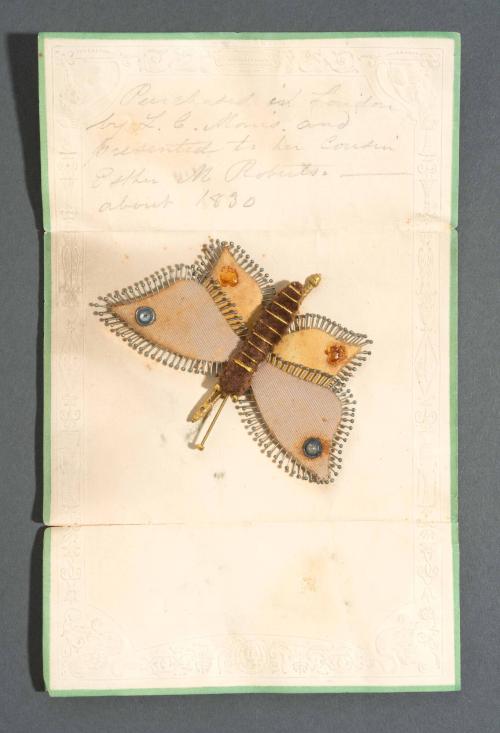 Purchased in London
by L. C. Morris and
Presented to her Cousin
Esther M Roberts.
about 1830